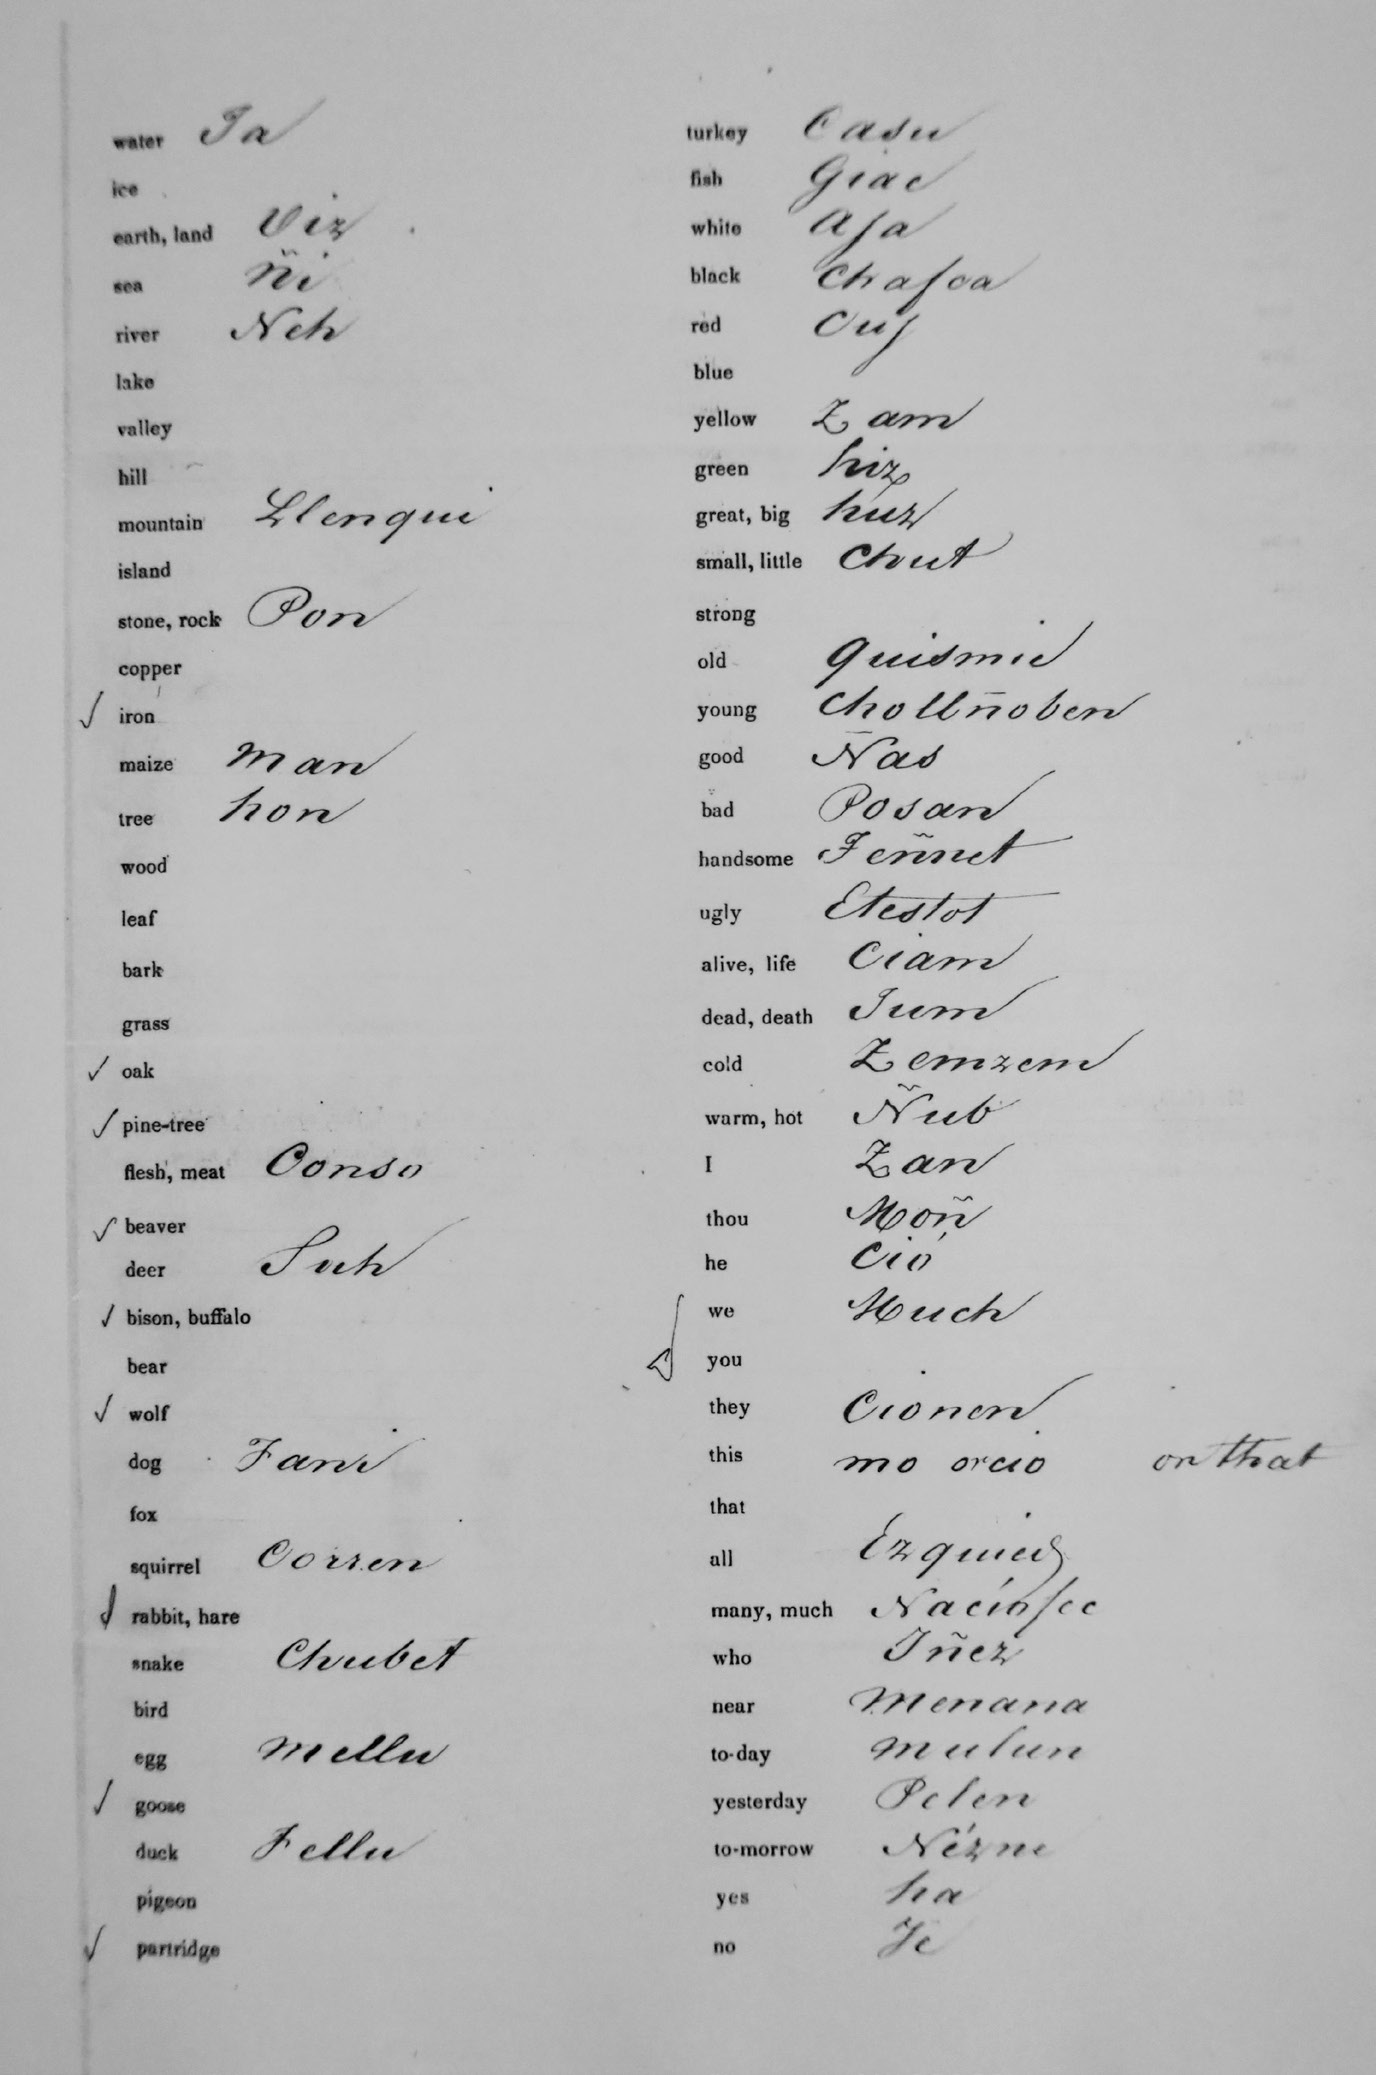 water Ja
ice
earth, land Viz
sea ñi
river Neh
lake
valley
hill
mountain Llenqui
island
stone, rock Pon
copper
✓ iron
maize Man
tree hon
wood
leaf
bark
grass
✓ oak
✓ pine-tree
flesh, meat Conso
✓ beaver
deer Suh
✓ bison, buffalo
bear
✓ wolf
dog Fani
fox
squirrel Corren
✓ rabbit, hare
snake Chubet
bird
egg Mellu
✓ goose
duck Fellu
pigeon
✓ partridge
turkey Casu
fish Giac
white Aja
black Chafca
red Cuj
blue
yellow Zam
green hiz
great, big huz
small, little Chut
strong
old Quismic
young Chollñoben
good Ñas
bad Posan
handsome Feñnet
ugly Etestot
alive, life Ciam
dead, death Jum
cold Zemzem
warm, hot Ñub
I Zan
thou Moñ
he Ció
we Much
you
they Cionen
this mo orcio or that
that
all
many, much
who Iñez
near Menana
to-day Mulun
yesterday Pelen
to-morrow
yes ha
no Je